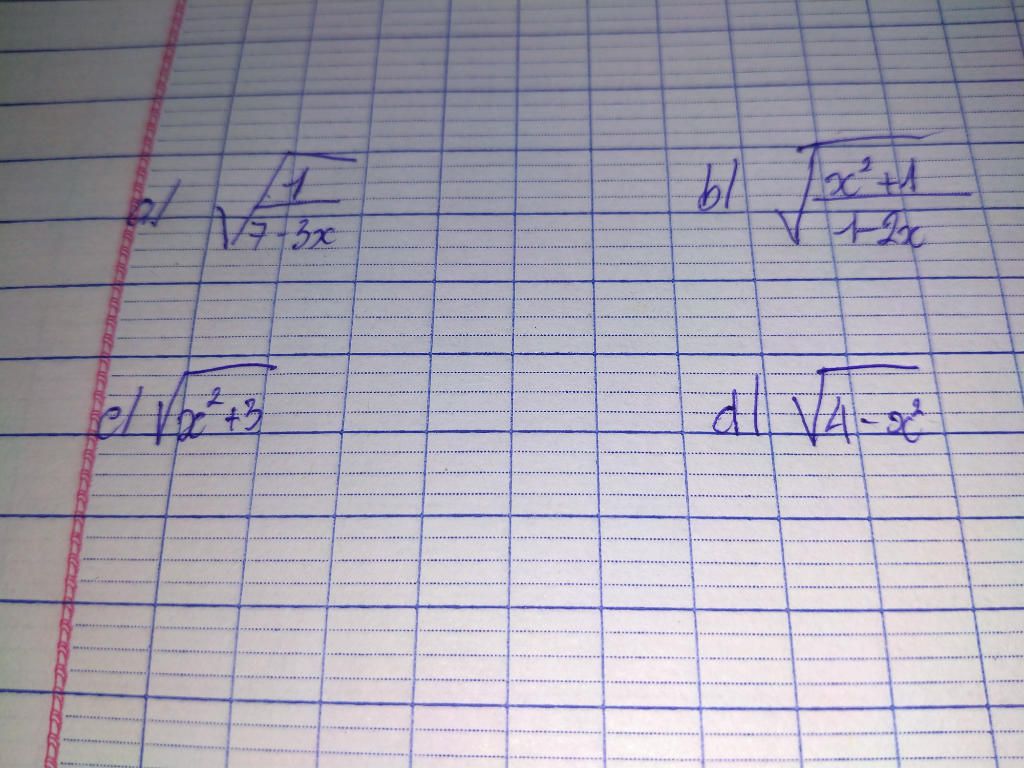 a/ √(1/(7-3x)) b/ √((x²+1)/(1-2x))
c/ √(x²+3) d/ √(4-x²)